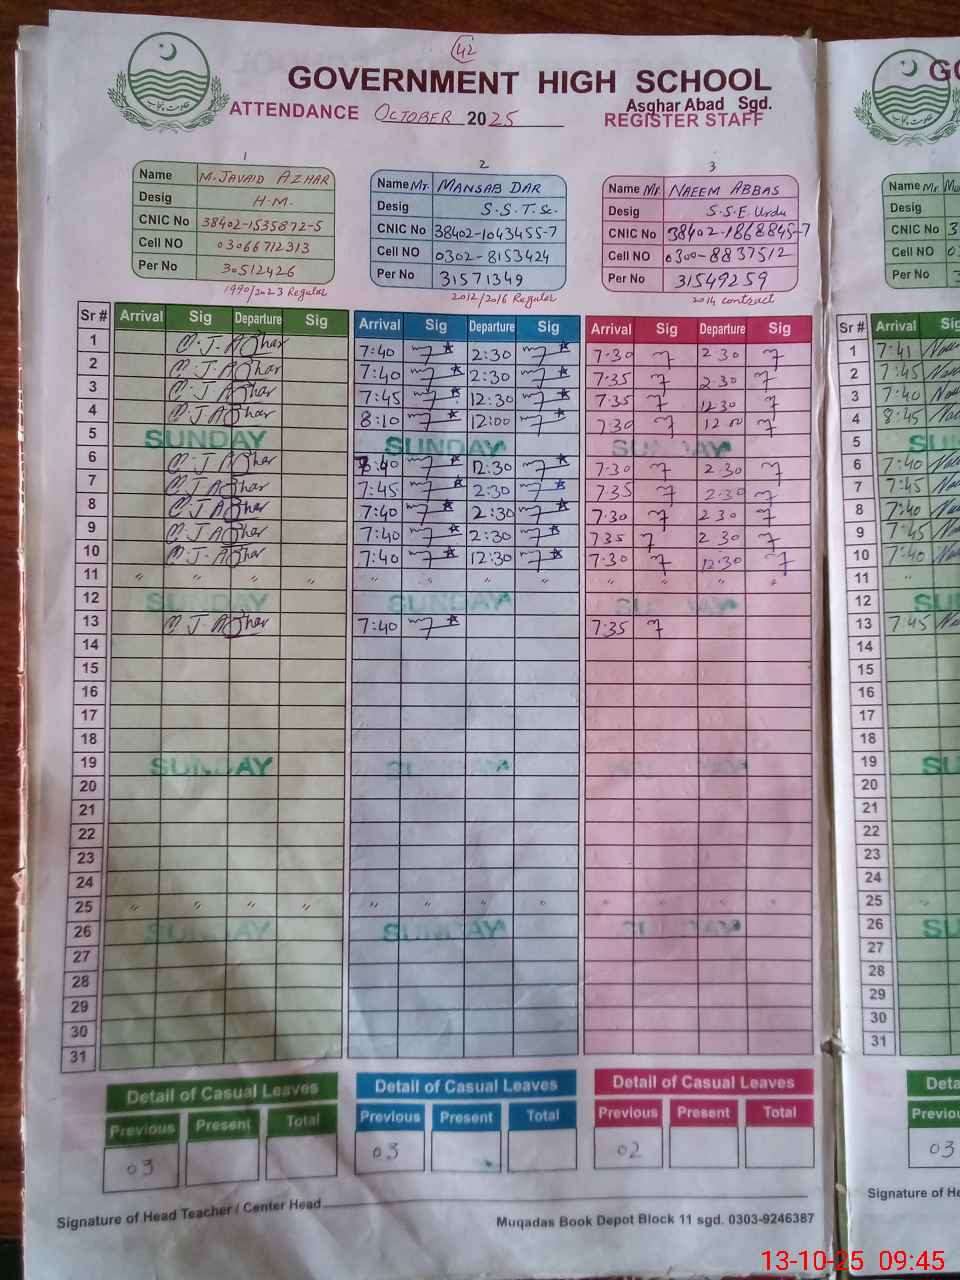 42
GOVERNMENT HIGH SCHOOL
Asghar Abad Sgd.
ATTENDANCE OCTOBER 2025 REGISTER STAFF
حکومت پنجاب
1
Name M. JAVAID AZHAR
Desig H.M.
CNIC No 38402-1535872-5
Cell NO 03066712313
Per No 30512426
1990/2023 Regular
2
Name Mr. MANSAB DAR
Desig S.S.T.Sc.
CNIC No 38402-1043455-7
Cell NO 0302-8153424
Per No 31571349
2012/2016 Regular
3
Name Mr. NAEEM ABBAS
Desig S.S.E Urdu
CNIC No 38402-1868845-7
Cell NO 0300-8837512
Per No 31549259
2014 contract
Name Mr.
Desig
CNIC No 3
Cell NO
Per No
Sr # Arrival Sig Departure Sig Arrival Sig Departure Sig Arrival Sig Departure Sig Sr # Arrival
1 M.J.Azhar 7:40 2:30 7:30 2 30 1 7:41
2 M.J.Azhar 7:40 2:30 7:35 2 30 2 7:45
3 M.J.Azhar 7:45 12:30 7:35 12 30 3 7:40
4 M.J.Azhar 8:10 12:00 7:30 12 00 4 8:45
5 SUNDAY SUNDAY SUNDAY 5
6 M.J.Azhar 7:40 12:30 7:30 2 30 6 7:40
7 M.J.Azhar 7:45 2:30 7:35 2 30 7 7:45
8 M.J.Azhar 7:40 2:30 7:30 2 30 8 7:40
9 M.J.Azhar 7:40 2:30 7:35 2 30 9 7:45
10 M.J.Azhar 7:40 12:30 7:30 12:30 10 7:40
11 " " " " " " " " " " 11 "
12 SUNDAY SUNDAY SUNDAY 12
13 M.J.Azhar 7:40 7:35 13 7:45
14 14
15 15
16 16
17 17
18 18
19 SUNDAY SUNDAY SUNDAY 19
20 20
21 21
22 22
23 23
24 24
25 " " " " " " " " " " " " 25 "
26 SUNDAY SUNDAY SUNDAY 26
27 27
28 28
29 29
30 30
31 31
Detail of Casual Leaves Detail of Casual Leaves Detail of Casual Leaves
Previous Present Total Previous Present Total Previous Present Total
03 03 02 03
Signature of Head Teacher / Center Head
Muqadas Book Depot Block 11 sgd. 0303-9246387
Signature of
13-10-25 09:45